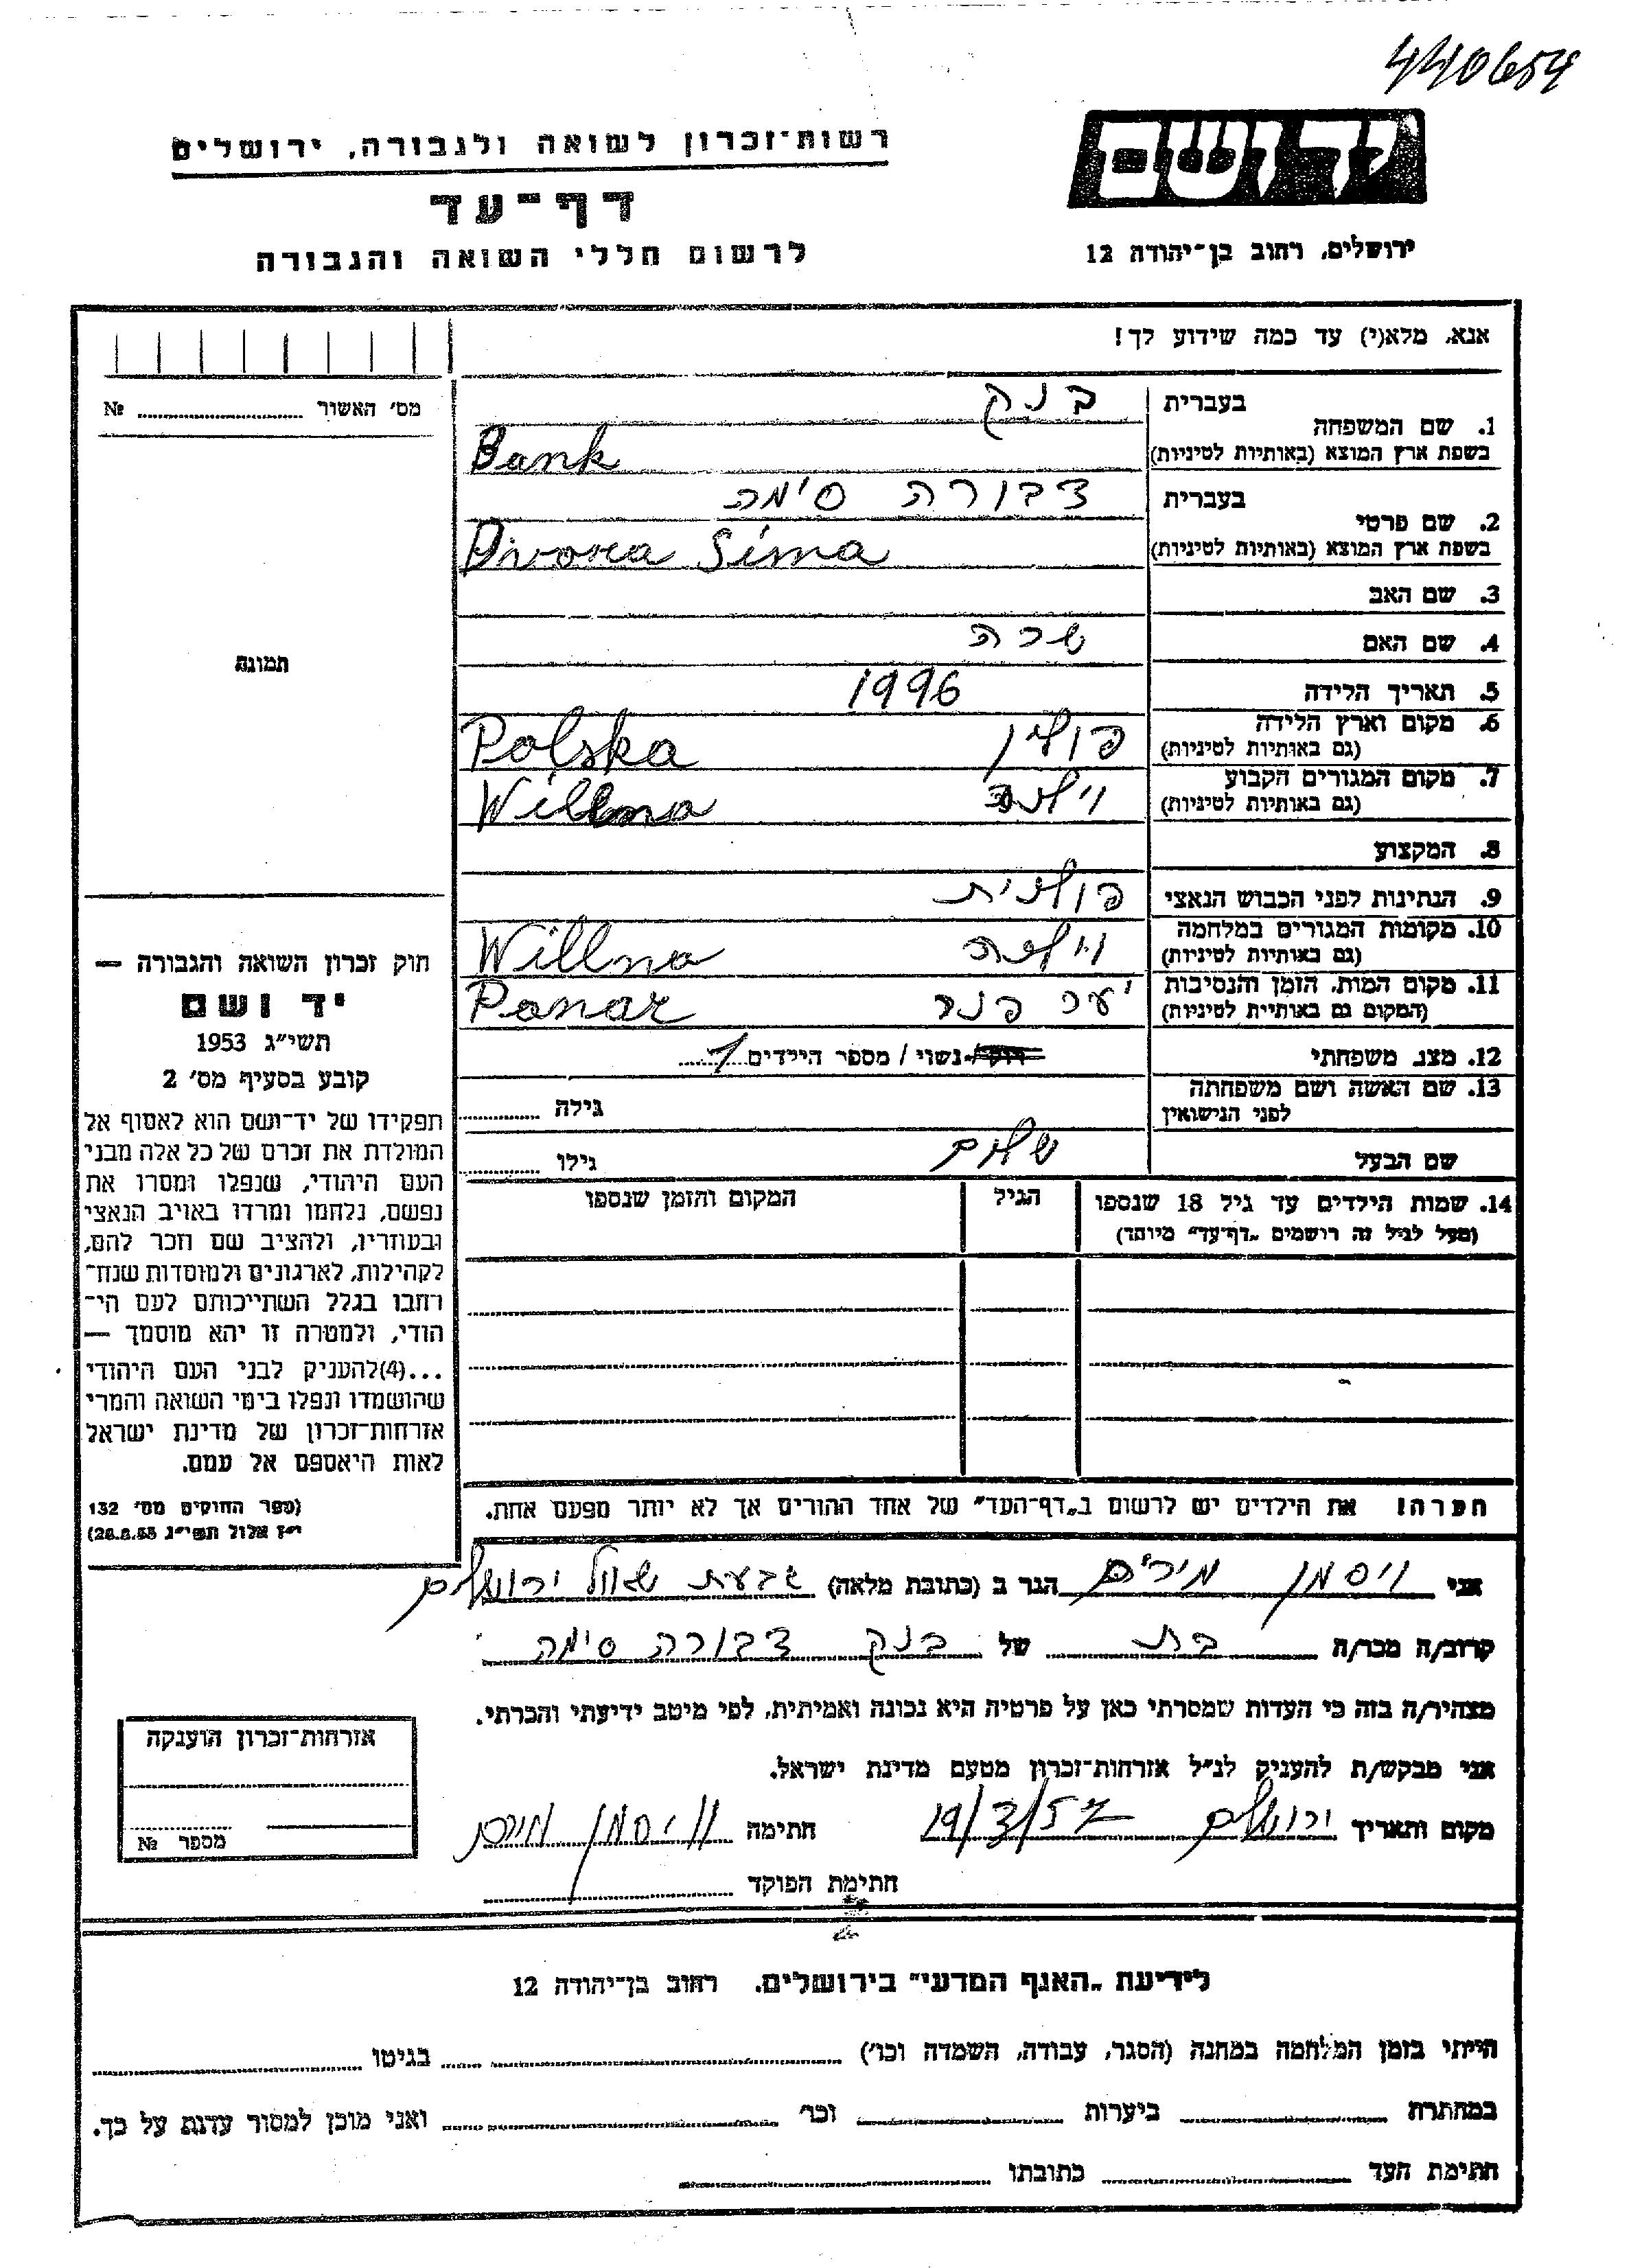 440654
יד ושם
ירושלים, רחוב בן־יהודה 12
רשות־זכרון לשואה ולגבורה, ירושלים
דף־עד
לרשום חללי השואה והגבורה
אנא, מלא(י) עד כמה שידוע לך!
1. שם המשפחה
בעברית בנק
בשפת ארץ המוצא (באותיות לטיניות) Bank
2. שם פרטי
בעברית דבורה סימה
בשפת ארץ המוצא (באותיות לטיניות) Divora Sima
3. שם האב
4. שם האם שרה
5. תאריך הלידה 1996
6. מקום וארץ הלידה
(גם באותיות לטיניות) פולין Polska
7. מקום המגורים הקבוע
(גם באותיות לטיניות) וילנה Willna
8. המקצוע
9. הנתינות לפני הכבוש הנאצי פולנית
10. מקומות המגורים במלחמה
(גם באותיות לטיניות) וילנה Willna
11. מקום המות, הזמן והנסיבות
(המקום גם באותיות לטיניות) יער פנר Ponar
12. מצב משפחתי רווק/נשוי / מספר הילדים 1
13. שם האשה ושם משפחתה
לפני הנישואין גילה
שם הבעל שלום גילו
14. שמות הילדים עד גיל 18 שנספו הגיל המקום והזמן שנספו
(מעל לגיל זה רושמים „דף־עד" מיוחד)
הערה! את הילדים יש לרשום ב„דף־העד" של אחד ההורים אך לא יותר מפעם אחת.
מס' האשור №
תמונה
חוק זכרון השואה והגבורה —
יד ושם
תשי"ג 1953
קובע בסעיף מס' 2
תפקידו של יד־ושם הוא לאסוף אל
המולדת את זכרם של כל אלה מבני
העם היהודי, שנפלו ומסרו את
נפשם, נלחמו ומרדו באויב הנאצי
ובעוזריו, ולהציב שם וזכר להם,
לקהילות, לארגונים ולמוסדות שנח־
רבו בגלל השתייכותם לעם הי־
הודי, ולמטרה זו יהא מוסמך —
...(4)להעניק לבני העם היהודי
שהושמדו ונפלו בימי השואה והמרי
אזרחות־זכרון של מדינת ישראל
לאות היאספם אל עמם.
(ספר החוקים מס' 132
י"ז אלול תשי"ג 28.8.53)
אני ויסמן מירים הגר ב (כתובת מלאה) גבעת שאול ירושלים
קרוב/ה מכר/ה בת של בנק דבורה סימה
מצהיר/ה בזה כי העדות שמסרתי כאן על פרטיה היא נכונה ואמיתית, לפי מיטב ידיעתי והכרתי.
אני מבקש/ת להעניק לנ"ל אזרחות־זכרון מטעם מדינת ישראל.
מקום ותאריך ירושלים 19/3/57 חתימה ויסמן מירים
חתימת הפוקד
אזרחות־זכרון הוענקה
מספר №
לידיעת „האגף המדעי" בירושלים. רחוב בן־יהודה 12
הייתי בזמן המלחמה במחנה (הסגר, עבודה, השמדה וכו') בגיטו
במחתרת ביערות וכו' ואני מוכן למסור עדות על כך.
חתימת העד כתובתו